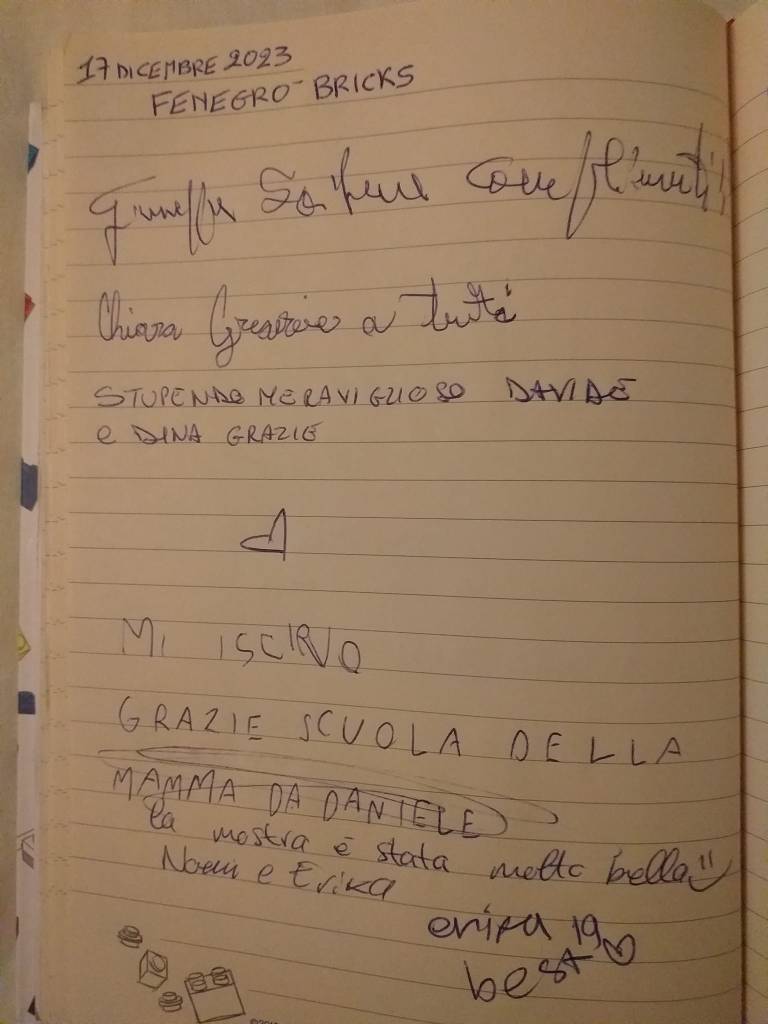 17 DICEMBRE 2023
FENEGRO' BRICKS
Complimenti!!
Chiara Grazie a tutti
STUPENDO MERAVIGLIOSO DAVIDE
e DINA GRAZIE
MI ISCRIVO
GRAZIE SCUOLA DELLA
MAMMA DA DANIELE
la mostra è stata molto bella
Noemi e Erika
erika 19
best